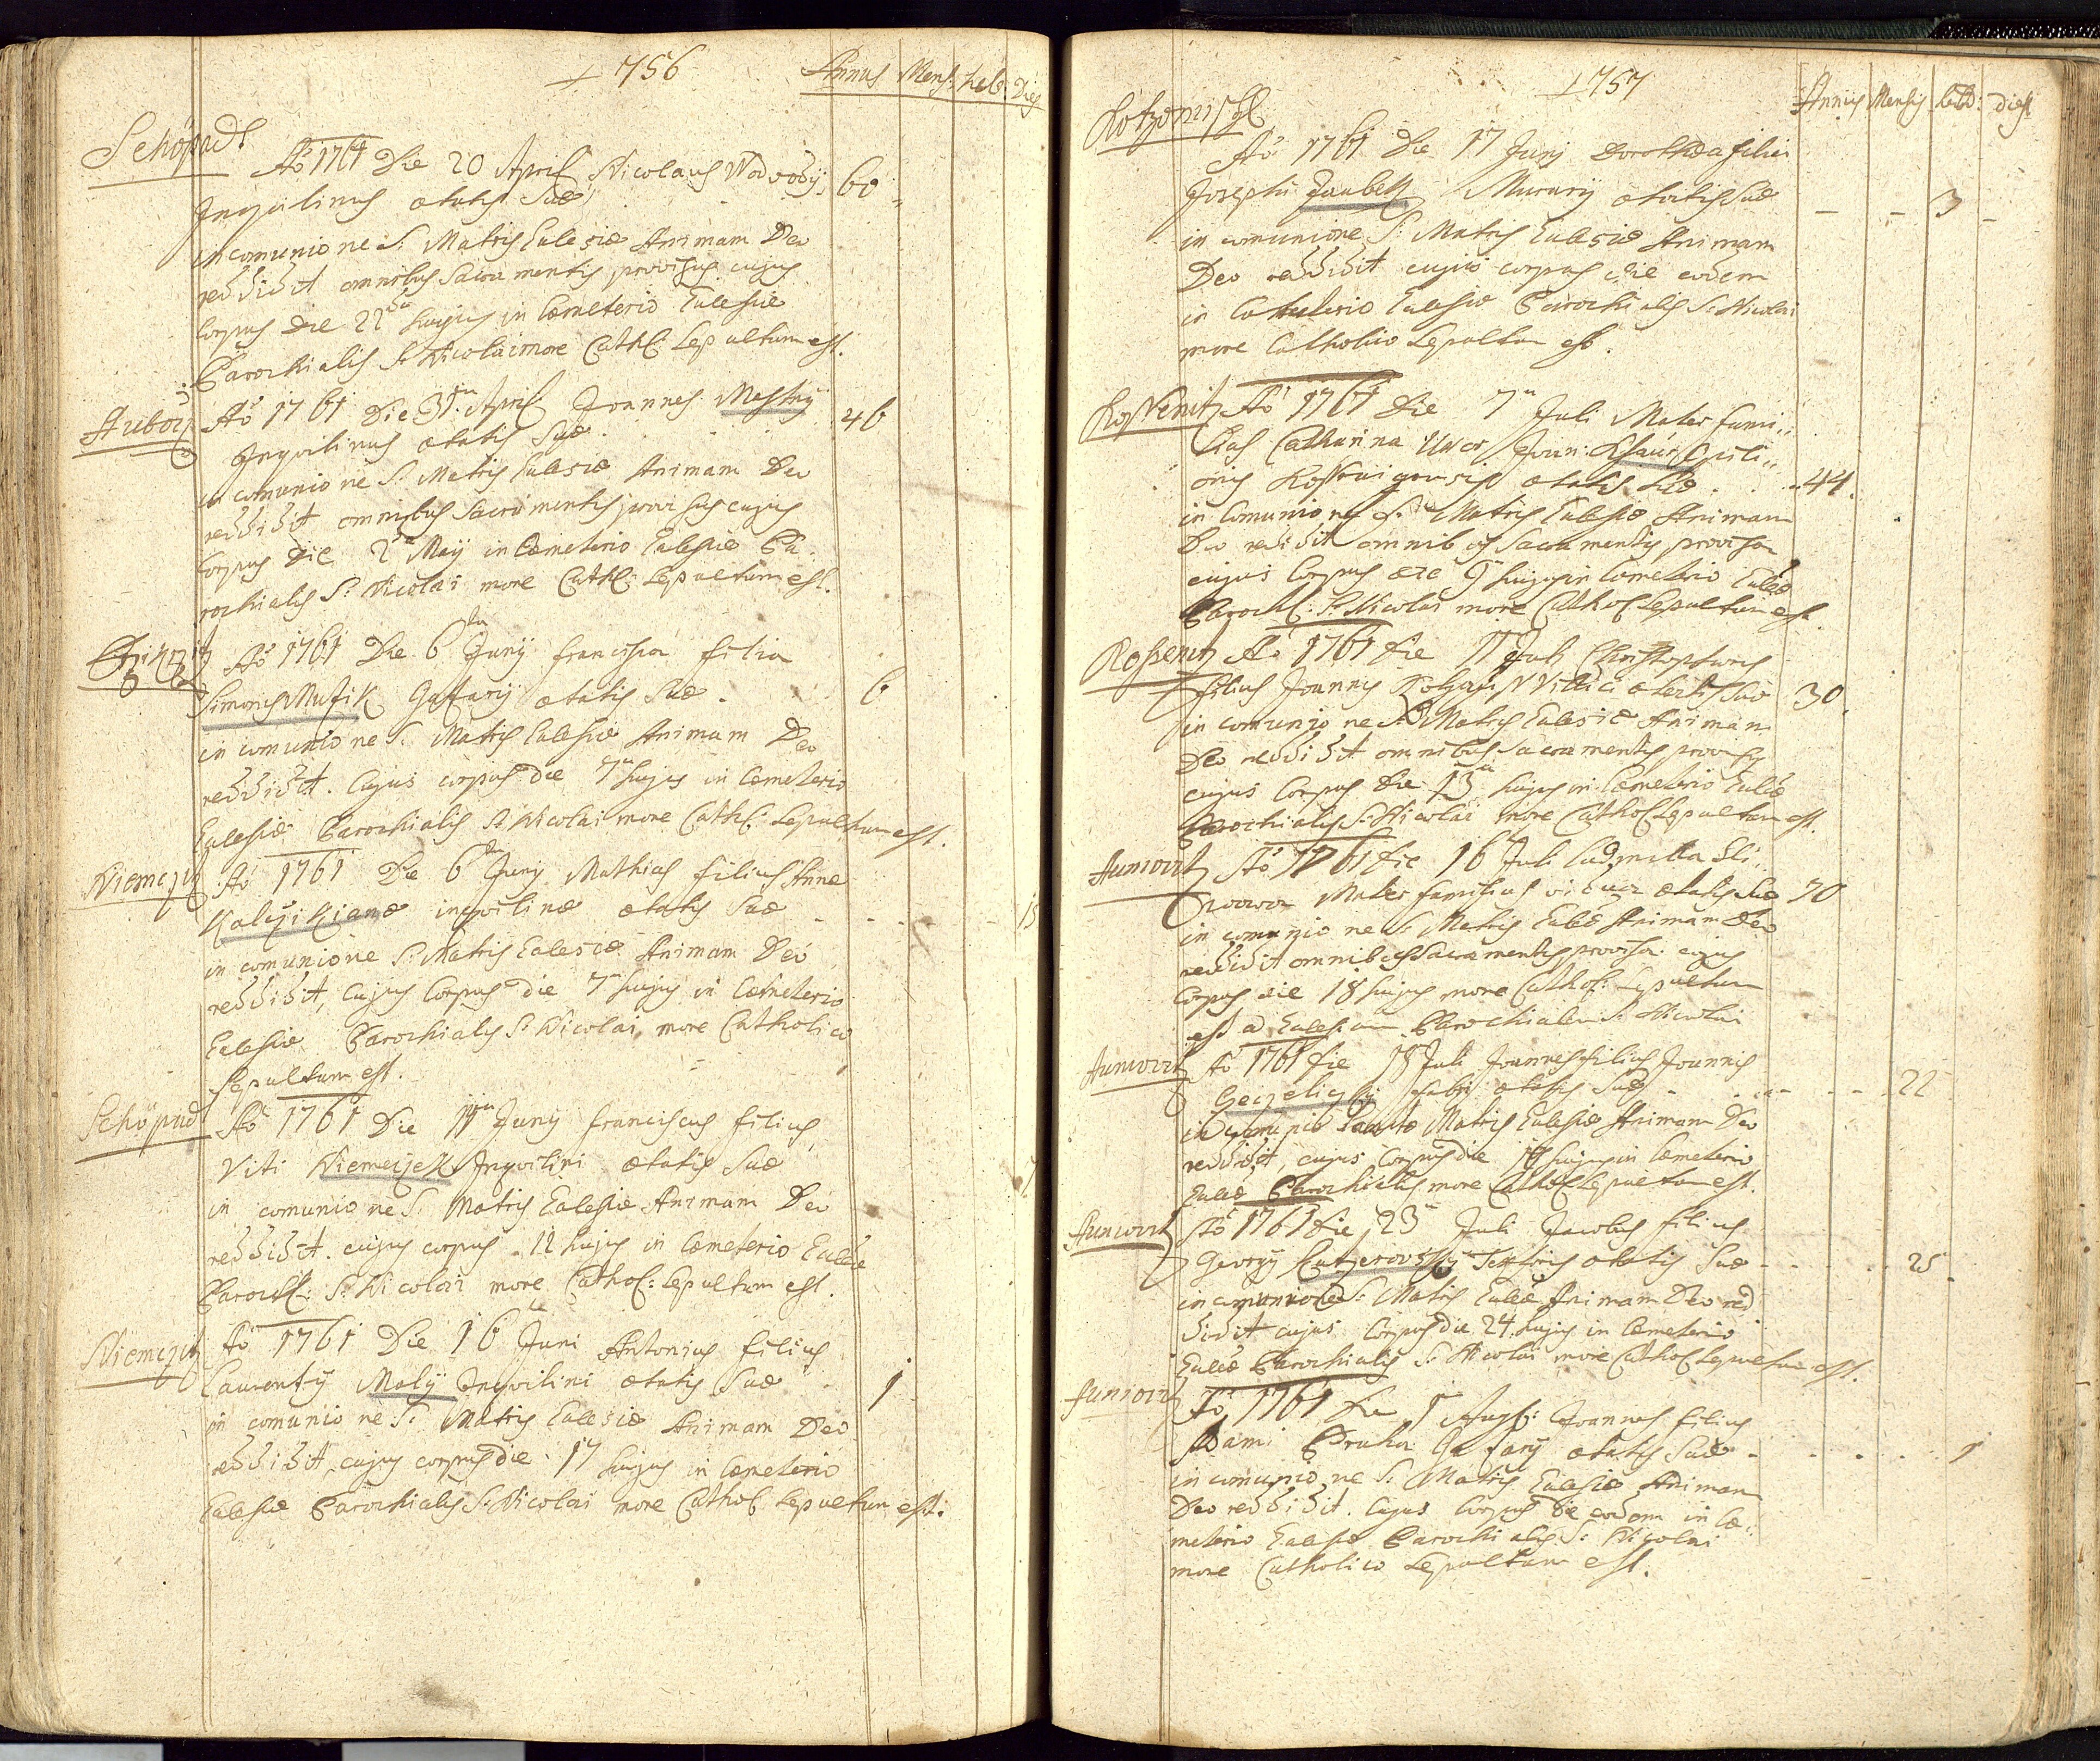 756
Annus Mens: heb: Dies
Schöpadl
Aõ 1761 Die 20 April Nicolaus Wodwody
Inquilinus ætatis Suæ 60
in comunione S: Matris Eclesiæ Animam Deo
reddidit omnibus Sacramentis provisus cujus
Corpus die 22da hujus in Cœmeterio Eclesiæ
Parochialis S: Nicolai more Cathl: Sepultum est.
Aõ 1761 Die April Joannes Mestky 46
Inquilinus ætatis Suæ
in comunione S: Matris Eclesiæ Animam Deo
reddidit omnibus Sacramentis provisus cujus
Corpus Die 2a Maij in Cœmeterio Eclesiæ Pa
rochialis S: Nicolai more Cathl: Sepultum est.
Aõ 1761 Die 6ta Junij Francisca filia
Simonis Musik Gazarij ætatis Suæ 6
in comunione S: Matris Eclesiæ Animam Deo
reddidit. Cujus corpus die 7ma hujus in Cœmeterio
Eclesiæ Parochialis S: Nicolai more Cathl: Sepultum est.
Niemczitz Aõ 1761 Die 6ta Junij Mathias filius Annæ
inquilinæ ætatis Suæ 15
in comunione S: Matris Eclesiæ Animam Deo
reddidit, Cujus Corpus die 7ma hujus in Cœmeterio
Eclesiæ Parochialis S: Nicolai more Catholico
Sepultum est.
Schöpadl Aõ 1761 Die 11ma Junij Franciscus filius
Viti Niemeyzek Inquilini ætatis Suæ 7
in comunione S: Matris Eclesiæ Animam Deo
reddidit. cujus corpus 12 hujus in Cœmeterio Eclesiæ
Parochl: S: Nicolai more Cathol: Sepultum est.
Niemczitz Aõ 1761 Die 16 Juni Antonius filius
Laurentij Malij Inquilini ætatis Suæ 1
in comunione S: Matris Eclesiæ Animam Deo
reddidit, cujus corpus die 17 hujus in Cœmeterio
Eclesiæ Parochialis S: Nicolai more Cathol. Sepultum est:
757
Annus Mensis hebd: dies
Aõ 1761 Die 17 Junij Dorothea filia
Josephi Murarij ætatis Suæ 3
in comunione S: Matris Eclesiæ Animam
Deo reddidit cujus corpus die eodem
in Eclesiæ Parochialis S: Nicolai
more Catholico Sepultum est.
Aõ 1761 Die 7a Juli Mater fami
lias Catharina Uxor Joan:
ætatis Suæ 44.
in Comunione S: Matris Eclesiæ Animam
Deo redidit omnibus Sacramentis provisa
cujus Corpus die 9a hujus in Cœmeterio Ecleæ
Parochl: S: Nicolai more Cathol Sepultum est.
Rossenitz Aõ 1761 die 11 Juli Christophorus
filius Joannis Villici ætatis Suæ 30
in comunione S: Matris Eclesiæ Animam
Deo reddidit omnibus Sacramentis provisus
cujus Corpus Die 13a hujus in Cœmeterio Ecleæ
Parochialis S: Nicolai more Cathol Sepultum est.
Auniovitz Aõ 1761 die 16 Juli Ludmilla Sli
Mater familias vidua ætatis Suæ 70
in comunione S: Matris Ecleæ Animam Deo
reddidit omnibus Sacramentis provisa. cujus
Corpus die 18 hujus more Cathol: Sepultum
est ad Eclesiam Parochialem S: Nicolai
Auniovitz Aõ 1761 die 18 Juli Joannes filius Joannis
Fabri ætatis Suæ 22
Matris Eclesiæ Animam Deo
reddidit, cujus Corpus die hujus in Cœmeterio
Ecleæ Parochialis more Cathol Sepultum est.
Auniovitz Aõ 1761 die 23a Juli Jacobus filius
Georgij Textoris ætatis Suæ 25
in comunione S: Matris Ecleæ Animam Deo red
didit cujus Corpus die 24 hujus in Cœmeterio
Ecleæ Parochialis S: Nicolai more Cathol Sepultum est.
Auniovitz Aõ 1761 die 1 Augs: Joannes filius
Adami Pruha Gazarij ætatis Suæ 1
in comunione S: Matris Eclesiæ Animam
Deo reddidit. Cujus Corpus Die eodem in Cœ
meterio Eclesiæ Parochialis S: Nicolai
more Catholico Sepultum est.